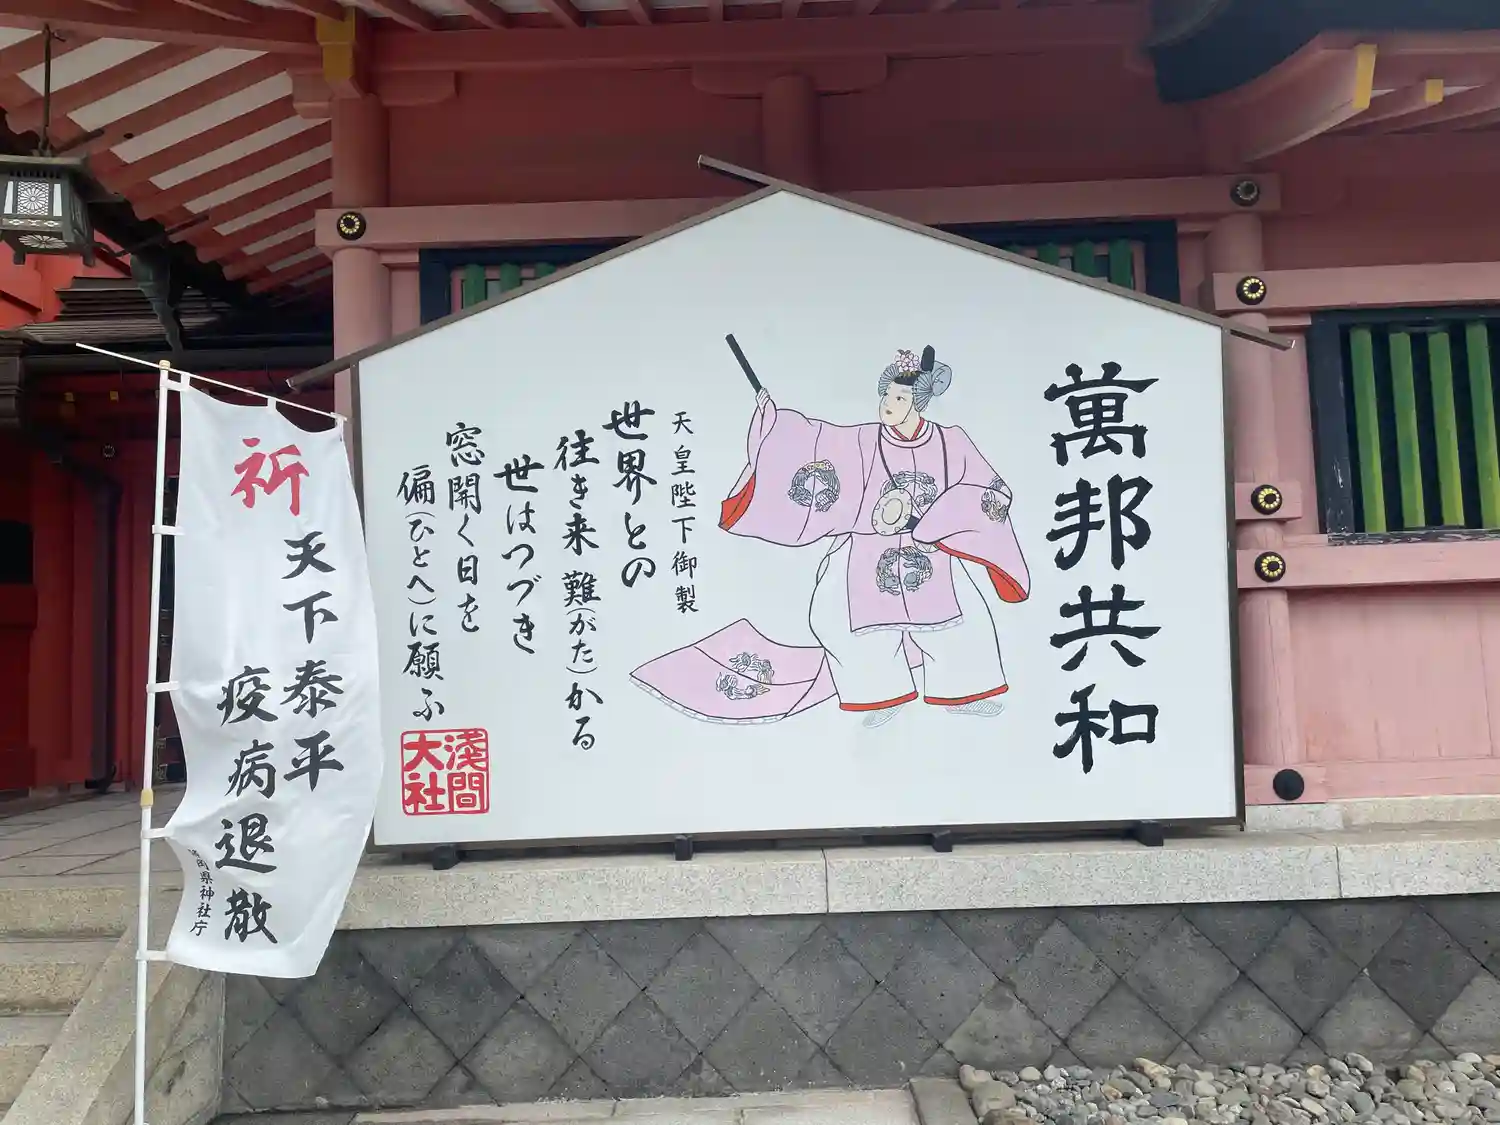 萬邦共和
天皇陛下御製
世界との
往き来難(がた)かる
世はつづき
窓開く日を
偏(ひとへ)に願ふ
淺間
大社
祈
天下泰平
疫病退散
岡県神社庁